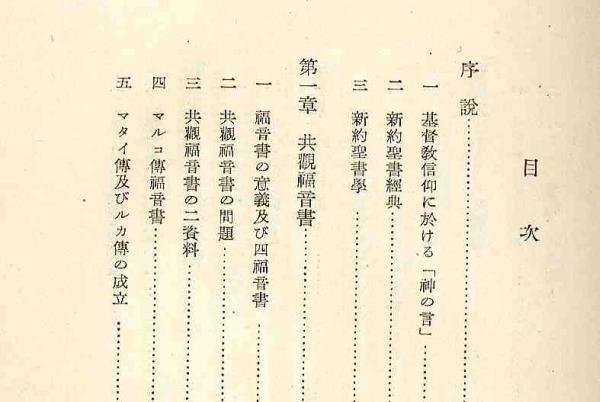 目次
序說
一 基督敎信仰に於ける「神の言」
二 新約聖書經典
三 新約聖書學
第一章 共觀福音書
一 福音書の意義及び四福音書
二 共觀福音書の問題
三 共觀福音書の二資料
四 マルコ傳福音書
五 マタイ傳及びルカ傳の成立